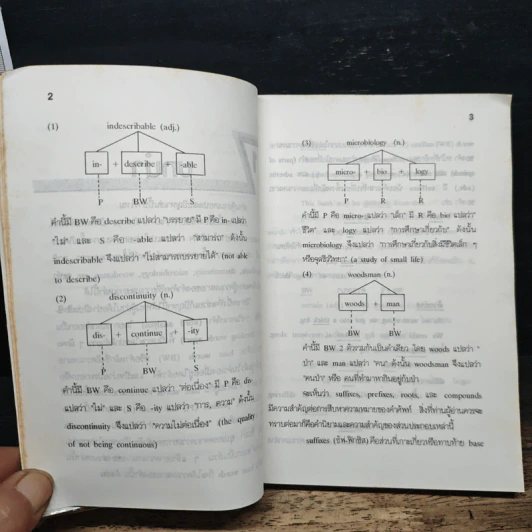 2
(1) indescribable (adj.)
in- + describe + -able
P BW S
คำนี้มี BW คือ describe แปลว่า "บรรยาย" มี P คือ in- แปลว่า
"ไม่" และ S คือ -able แปลว่า "สามารถ" ดังนั้น
indescribable จึงแปลว่า "ไม่สามารถบรรยายได้" (not able
to describe)
(2) discontinuity (n.)
dis- + continue + -ity
P BW S
คำนี้มี BW คือ continue แปลว่า "ต่อเนื่อง" มี P คือ dis-
แปลว่า "ไม่" และ S คือ -ity แปลว่า "การ, ความ" ดังนั้น
discontinuity จึงแปลว่า "ความไม่ต่อเนื่อง" (the quality
of not being continuous)
3
(3) microbiology (n.)
micro- + bio + logy
P R R
คำนี้มี P คือ micro- แปลว่า "เล็ก" มี R คือ bio แปลว่า
"ชีวิต" และ logy แปลว่า "การศึกษาเกี่ยวกับ" ดังนั้น
microbiology จึงแปลว่า "การศึกษาเกี่ยวกับสิ่งมีชีวิตเล็ก ๆ
หรือจุลชีววิทยา" (a study of small life)
(4) woodsman (n.)
woods + man
BW BW
คำนี้มี BW 2 ตัวรวมกันเป็นคำเดียว โดย woods แปลว่า "
ป่า" และ man แปลว่า "คน" ดังนั้น woodsman จึงแปลว่า
"คนป่า" หรือ คนที่ทำมาหากินอยู่กับป่า
จะเห็นว่า suffixes, prefixes, roots, และ compounds
มีความสำคัญต่อการสืบหาความหมายของคำศัพท์ สิ่งที่ท่านผู้อ่านควรจะ
ทราบต่อมาก็คือคำนิยามและความสำคัญของส่วนประกอบเหล่านี้
suffixes (ซัฟ-ฟิกซิส) คือส่วนที่เกาะเกี่ยวหรือทาบท้าย base